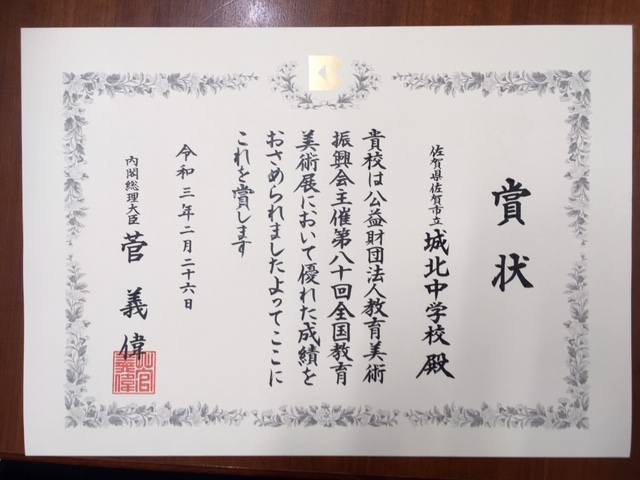 賞状
佐賀県佐賀市立城北中学校殿
貴校は公益財団法人教育美術
振興会主催第八十回全国教育
美術展において優れた成績を
おさめられましたよってここに
これを賞します
令和三年二月二十六日
内閣総理大臣 菅義偉
菅義偉